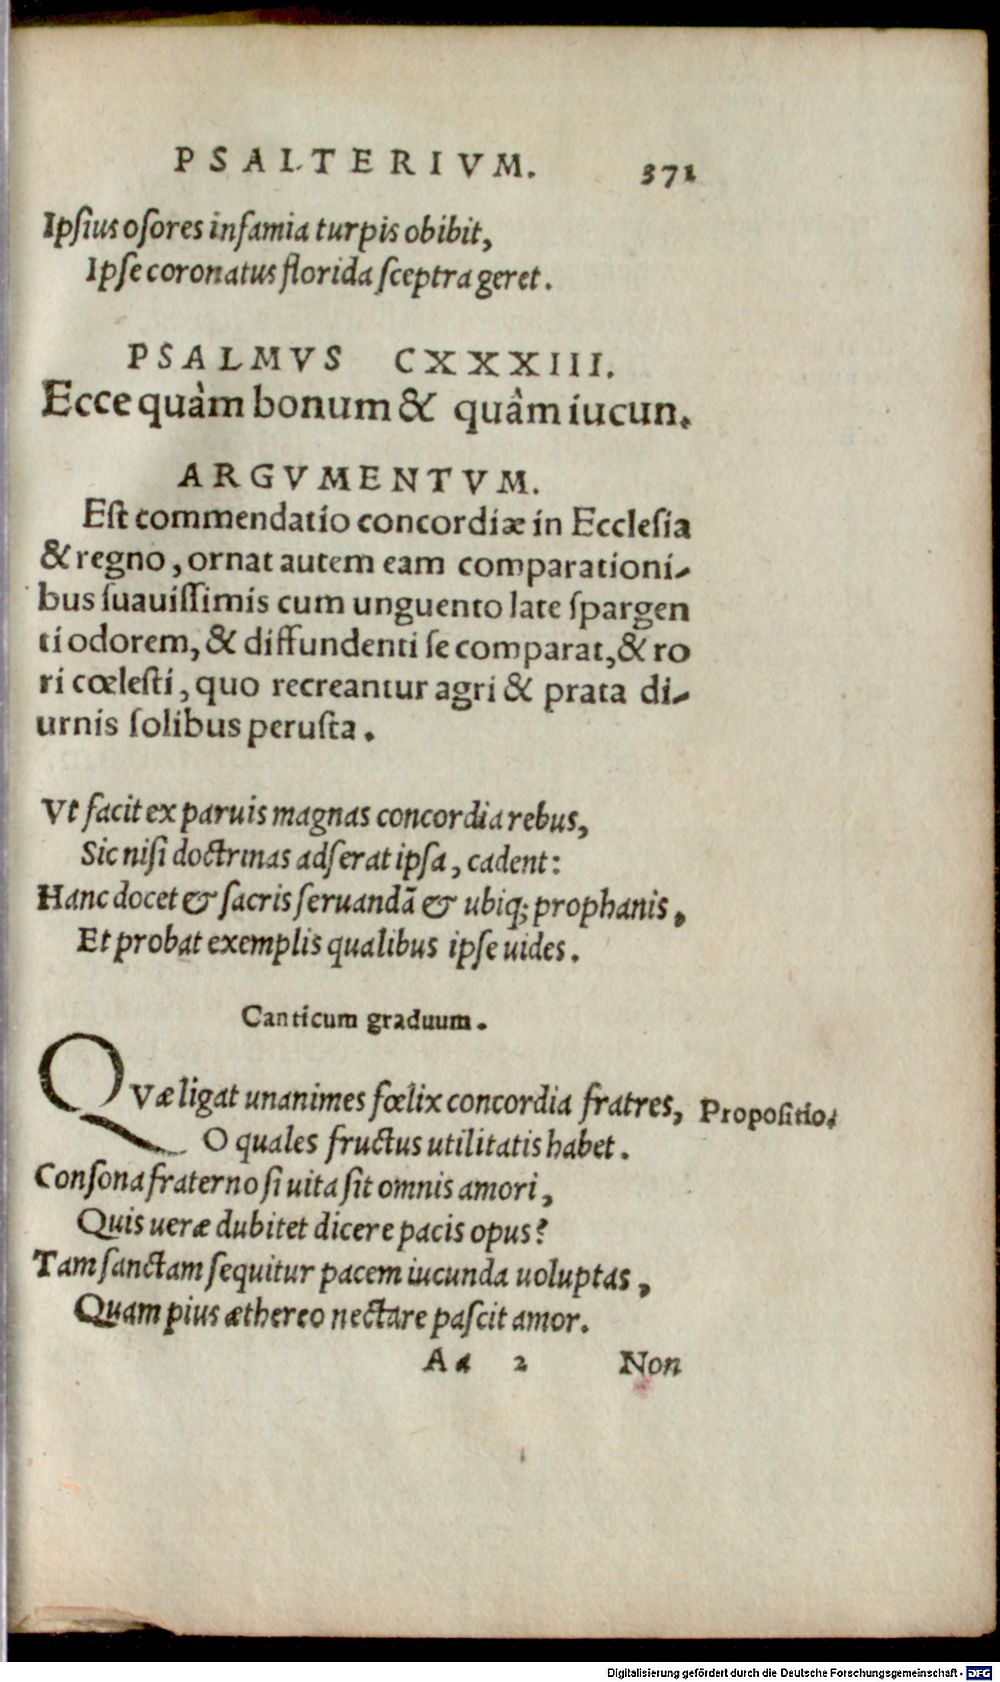 PSALTERIVM. 371
Ipsius osores infamia turpis obibit,
Ipse coronatus florida sceptra geret.
PSALMVS CXXXIII.
Ecce quàm bonum & quâm iucun.
ARGVMENTVM.
Est commendatio concordiæ in Ecclesia
& regno, ornat autem eam comparationi-
bus suauissimis cum unguento late spargen
ti odorem, & diffundenti se comparat, & ro
ri cœlesti, quo recreantur agri & prata di-
urnis solibus perusta.
Vt facit ex paruis magnas concordia rebus,
Sic nisi doctrinas adserat ipsa, cadent:
Hanc docet & sacris seruandā & ubiq; prophanis,
Et probat exemplis qualibus ipse uides.
Canticum graduum.
QVæ ligat unanimes fœlix concordia fratres, Propositio.
O quales fructus utilitatis habet.
Consona fraterno si uita sit omnis amori,
Quis ueræ dubitet dicere pacis opus?
Tam sanctam sequitur pacem iucunda uoluptas,
Quam pius æthereo nectare pascit amor.
Aa 2 Non
Digitalisierung gefördert durch die Deutsche Forschungsgemeinschaft - DFG